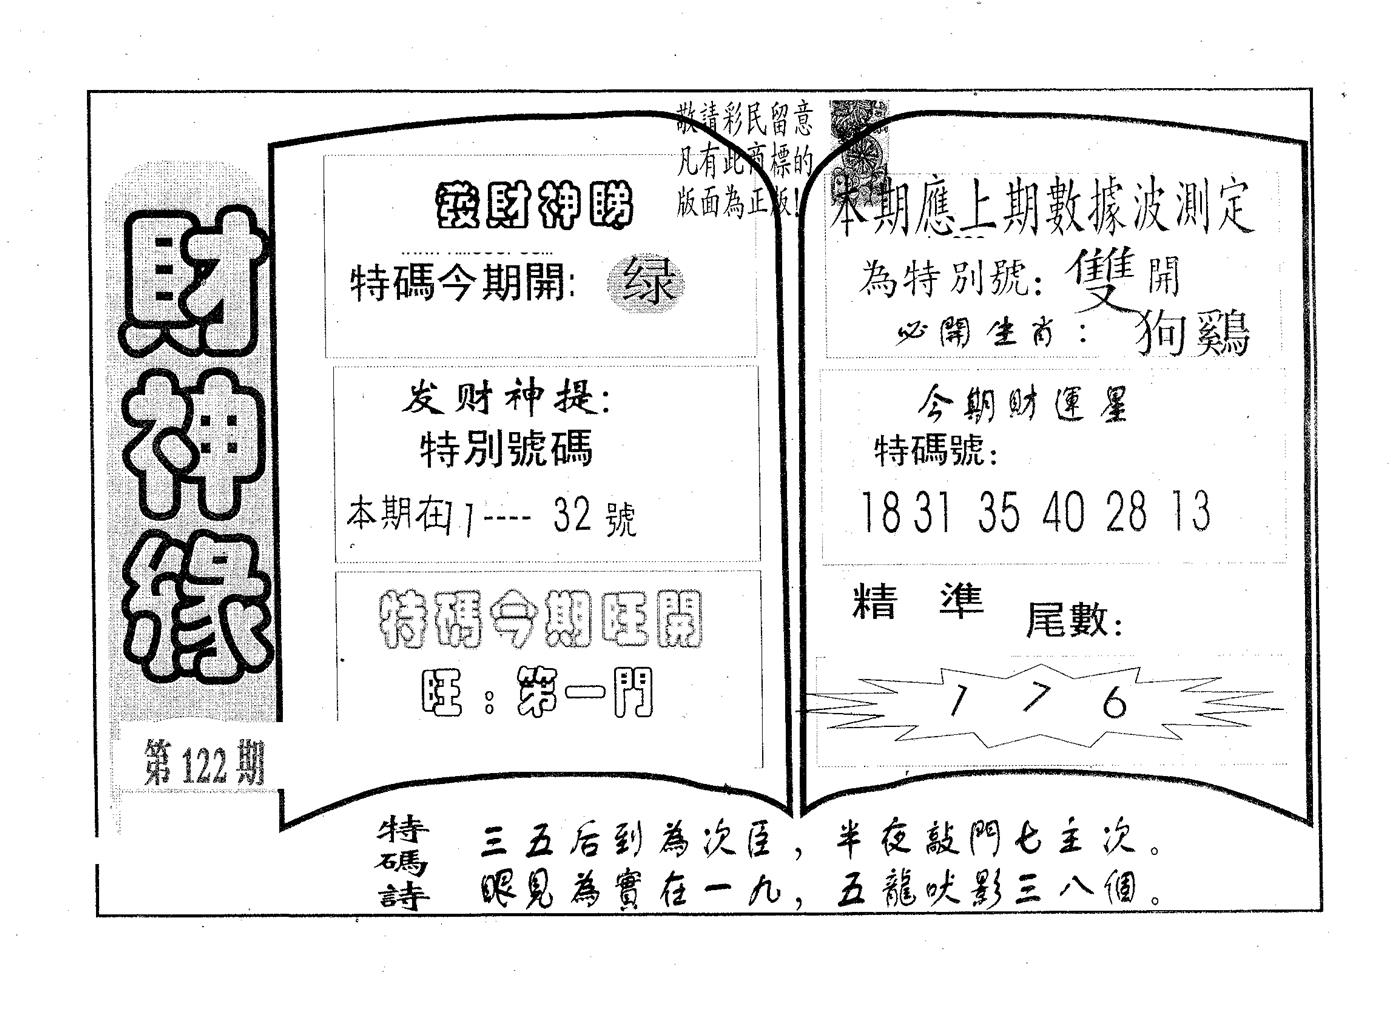 財神緣
第122期
敬請彩民留意
凡有此商標的
版面為正版!
發財神睇
特碼今期開:绿
发财神提:
特別號碼
本期在11----32號
特碼今期旺開
旺:第一門
本期應上期數據波測定
為特別號:雙開
必開生肖:狗鷄
今期財運星
特碼號:
18 31 35 40 28 13
精準尾數:
1 7 6
特碼詩
三五后到為次臣,半夜敲門七主次。
眼見為實在一九,五龍吠影三八個。